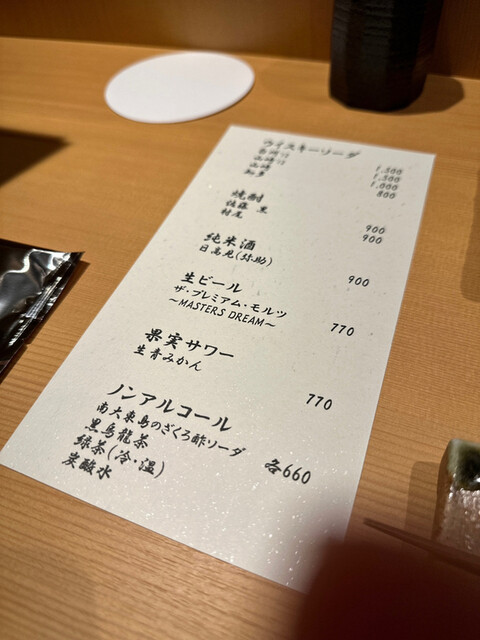 ウイスキーソーダ
山崎12 1,500
山崎 1,000
知多 800
焼酎
佐藤 黒 900
村尾 900
純米酒
日高見(弥助) 900
生ビール
ザ・プレミアム・モルツ
〜MASTERS DREAM〜 770
果実サワー
生青みかん 770
ノンアルコール
南大東島のざくろ酢ソーダ
黒烏龍茶 各660
緑茶(冷・温)
炭酸水